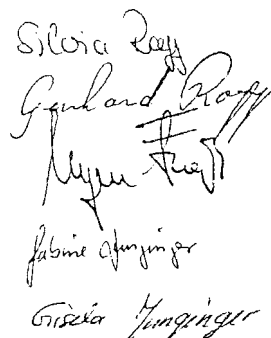 Silvia Rapp
Gerhard Rapp
Sabine Junginger
Gisela Junginger